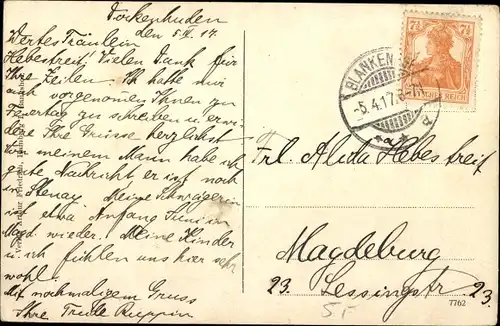 Dockenhuden
den 5. IV. 17.
Wertes Fräulein
Hebestreit! Vielen Dank für
Ihre Zeilen. Ich hatte mir
auch vorgenommen Ihnen zu
Feiertag zu schreiben u. erwi
dere Ihre Grüsse herzlichst
Von meinem Mann habe ich
gute Nachricht er ist noch
in Stenay. Meine Schwägerin
ist etwa Anfang Juni in
Magd. wieder. Meine Kinder
u. ich fühlen uns hier sehr
wohl.
Mit nochmaligem Gruss
Ihre Trude Ruppin
7½ 7½
DEUTSCHES REICH
BLANKENESE
-5.4.17.
Frl. Alida Hebestreit
Magdeburg
23. Lessingstr. 23.
7762